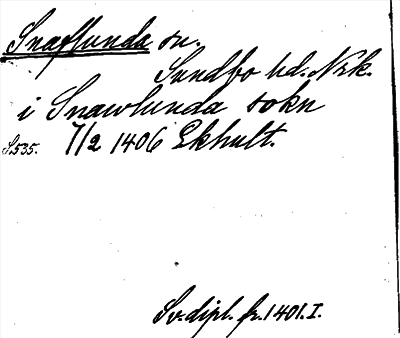 Snaflunda sn.
Sundbo hd. Nrk.
i Snawlunda sokn
S.535. 7/2 1406 Ekhult.
Sv. dipl. fr. 1401. I.